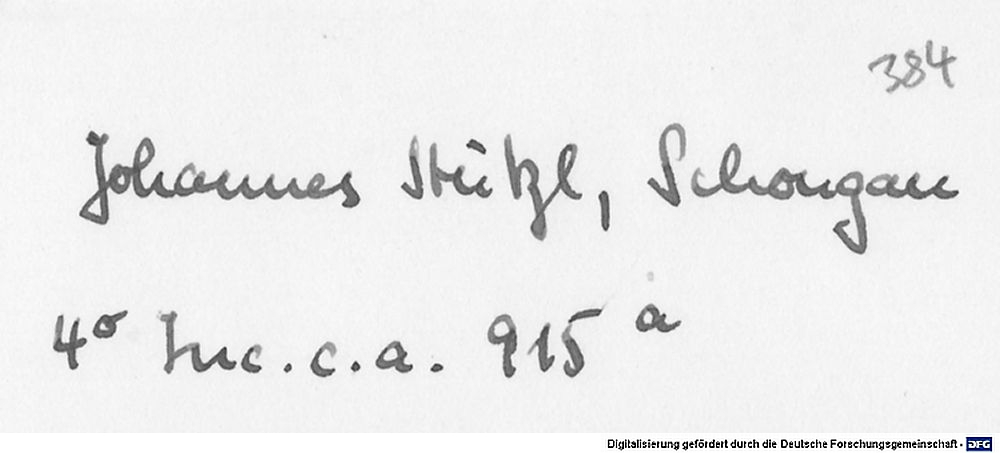 384
Johannes Stützl, Schongau
4° Inc. c. a. 915 a
Digitalisierung gefördert durch die Deutsche Forschungsgemeinschaft - DFG